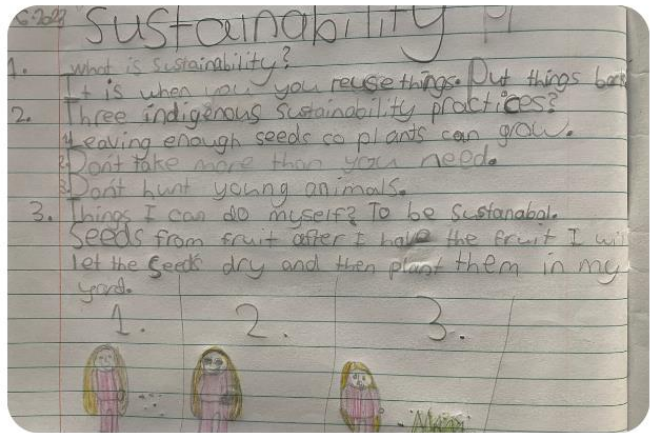 6-2023
Sustainability
1. What is Sustainability?
It is when you you reuse things. Put things back
2. Three indigenous Sustainability practices?
1 Leaving enough seeds so plants can grow.
2 Don't take more than you need.
3 Don't hunt young animals.
3. Things I can do myself? To be Sustanabal.
Seeds from fruit after I have the fruit I wil
let the Seeds dry and then plant them in my
yard.
1. 2. 3.